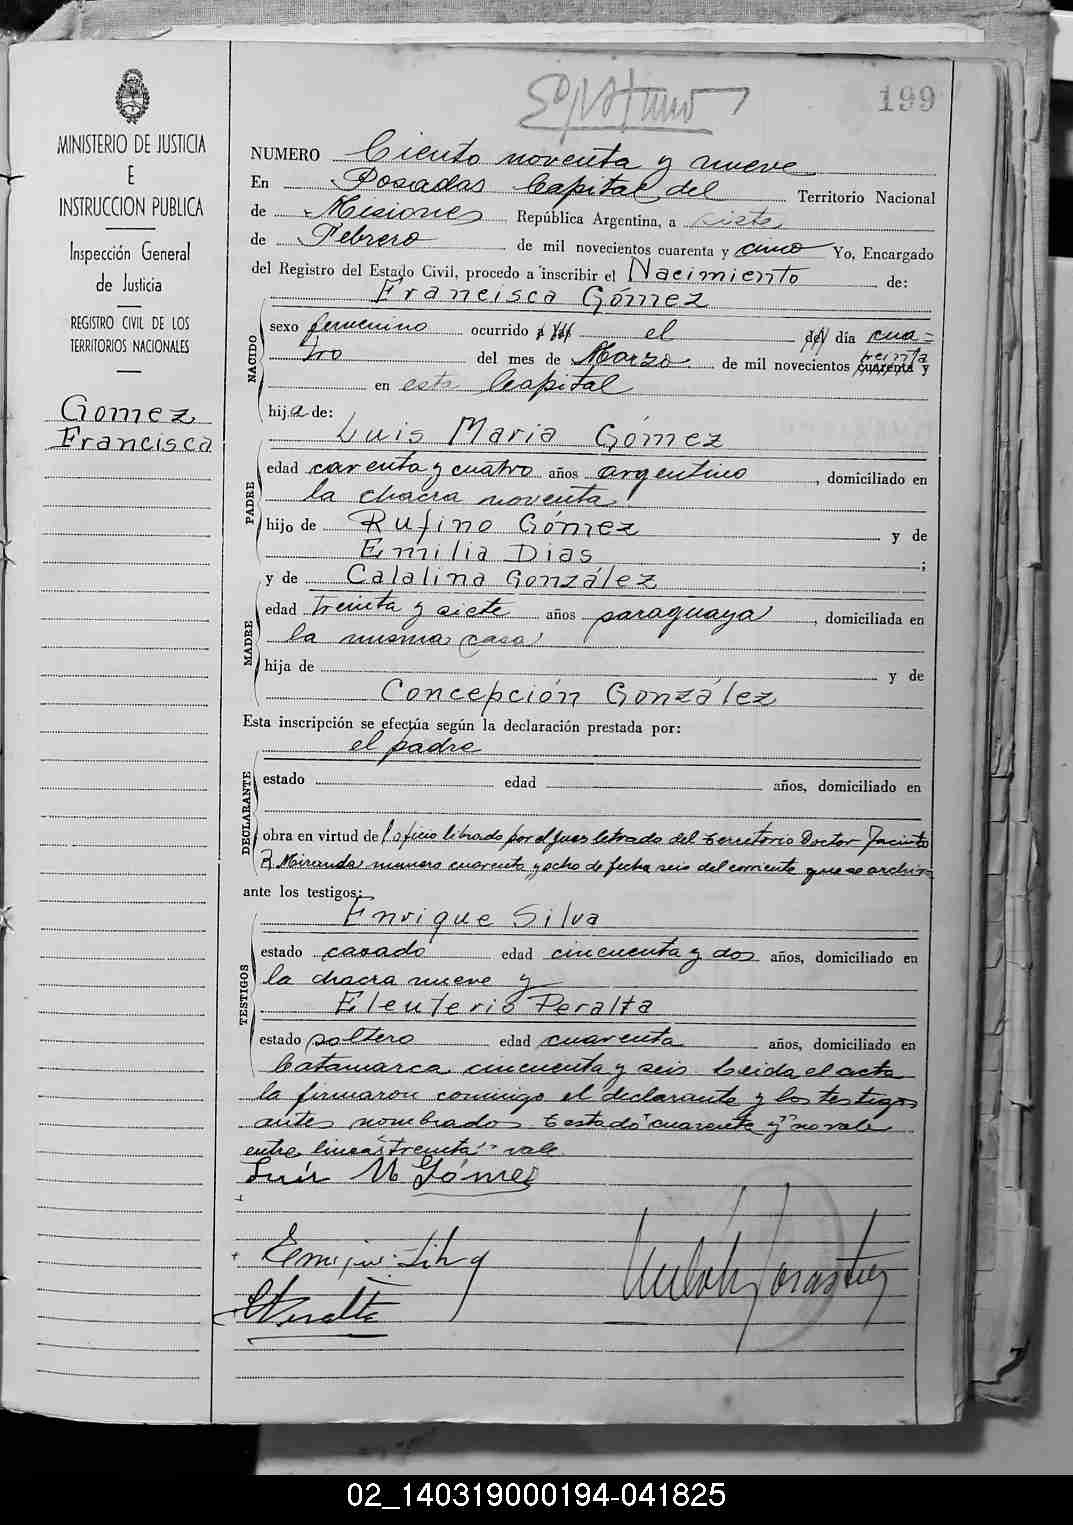 199
MINISTERIO DE JUSTICIA
E
INSTRUCCION PUBLICA
Inspección General
de Justicia
REGISTRO CIVIL DE LOS
TERRITORIOS NACIONALES
Gomez
Francisca
NUMERO Ciento noventa y nueve
En Posadas Capital del Territorio Nacional
de Misiones República Argentina, a siete
de Febrero de mil novecientos cuarenta y cinco Yo, Encargado
del Registro del Estado Civil, procedo a inscribir el Nacimiento de:
Francisca Gómez
NACIDO
sexo femenino ocurrido el día cua=
tro del mes de Marzo de mil novecientos treinta cuarenta y
en esta Capital
hija de:
Luis Maria Gómez
PADRE
edad carenta y cuatro años argentino, domiciliado en
la chacra noventa
hijo de Rufino Gómez y de
Emilia Dias ;
y de Calalina González
MADRE
edad treinta y siete años paraguaya, domiciliada en
la misma casa
hija de y de
Concepción González
Esta inscripción se efectúa según la declaración prestada por:
el padre
DECLARANTE
estado edad años, domiciliado en
obra en virtud de l oficio librado por el Juez letrado del territorio Doctor Jacinto
R Miranda número cuarenta y ocho de fecha seis del corriente que se archiva
ante los testigos:
Enrique Silva
TESTIGOS
estado casado edad cincuenta y dos años, domiciliado en
la chacra nueve y
Eleuterio Peralta
estado soltero edad cuarenta años, domiciliado en
Catamarca cincuenta y seis Leida el acta
la firmaron conmigo el declarante y los testigos
antes nombrados Testado "cuarenta y" no vale
entre lineas "treinta" vale
Luis M Gómez
Enrique Silva
EPeralta
02_140319000194-041825